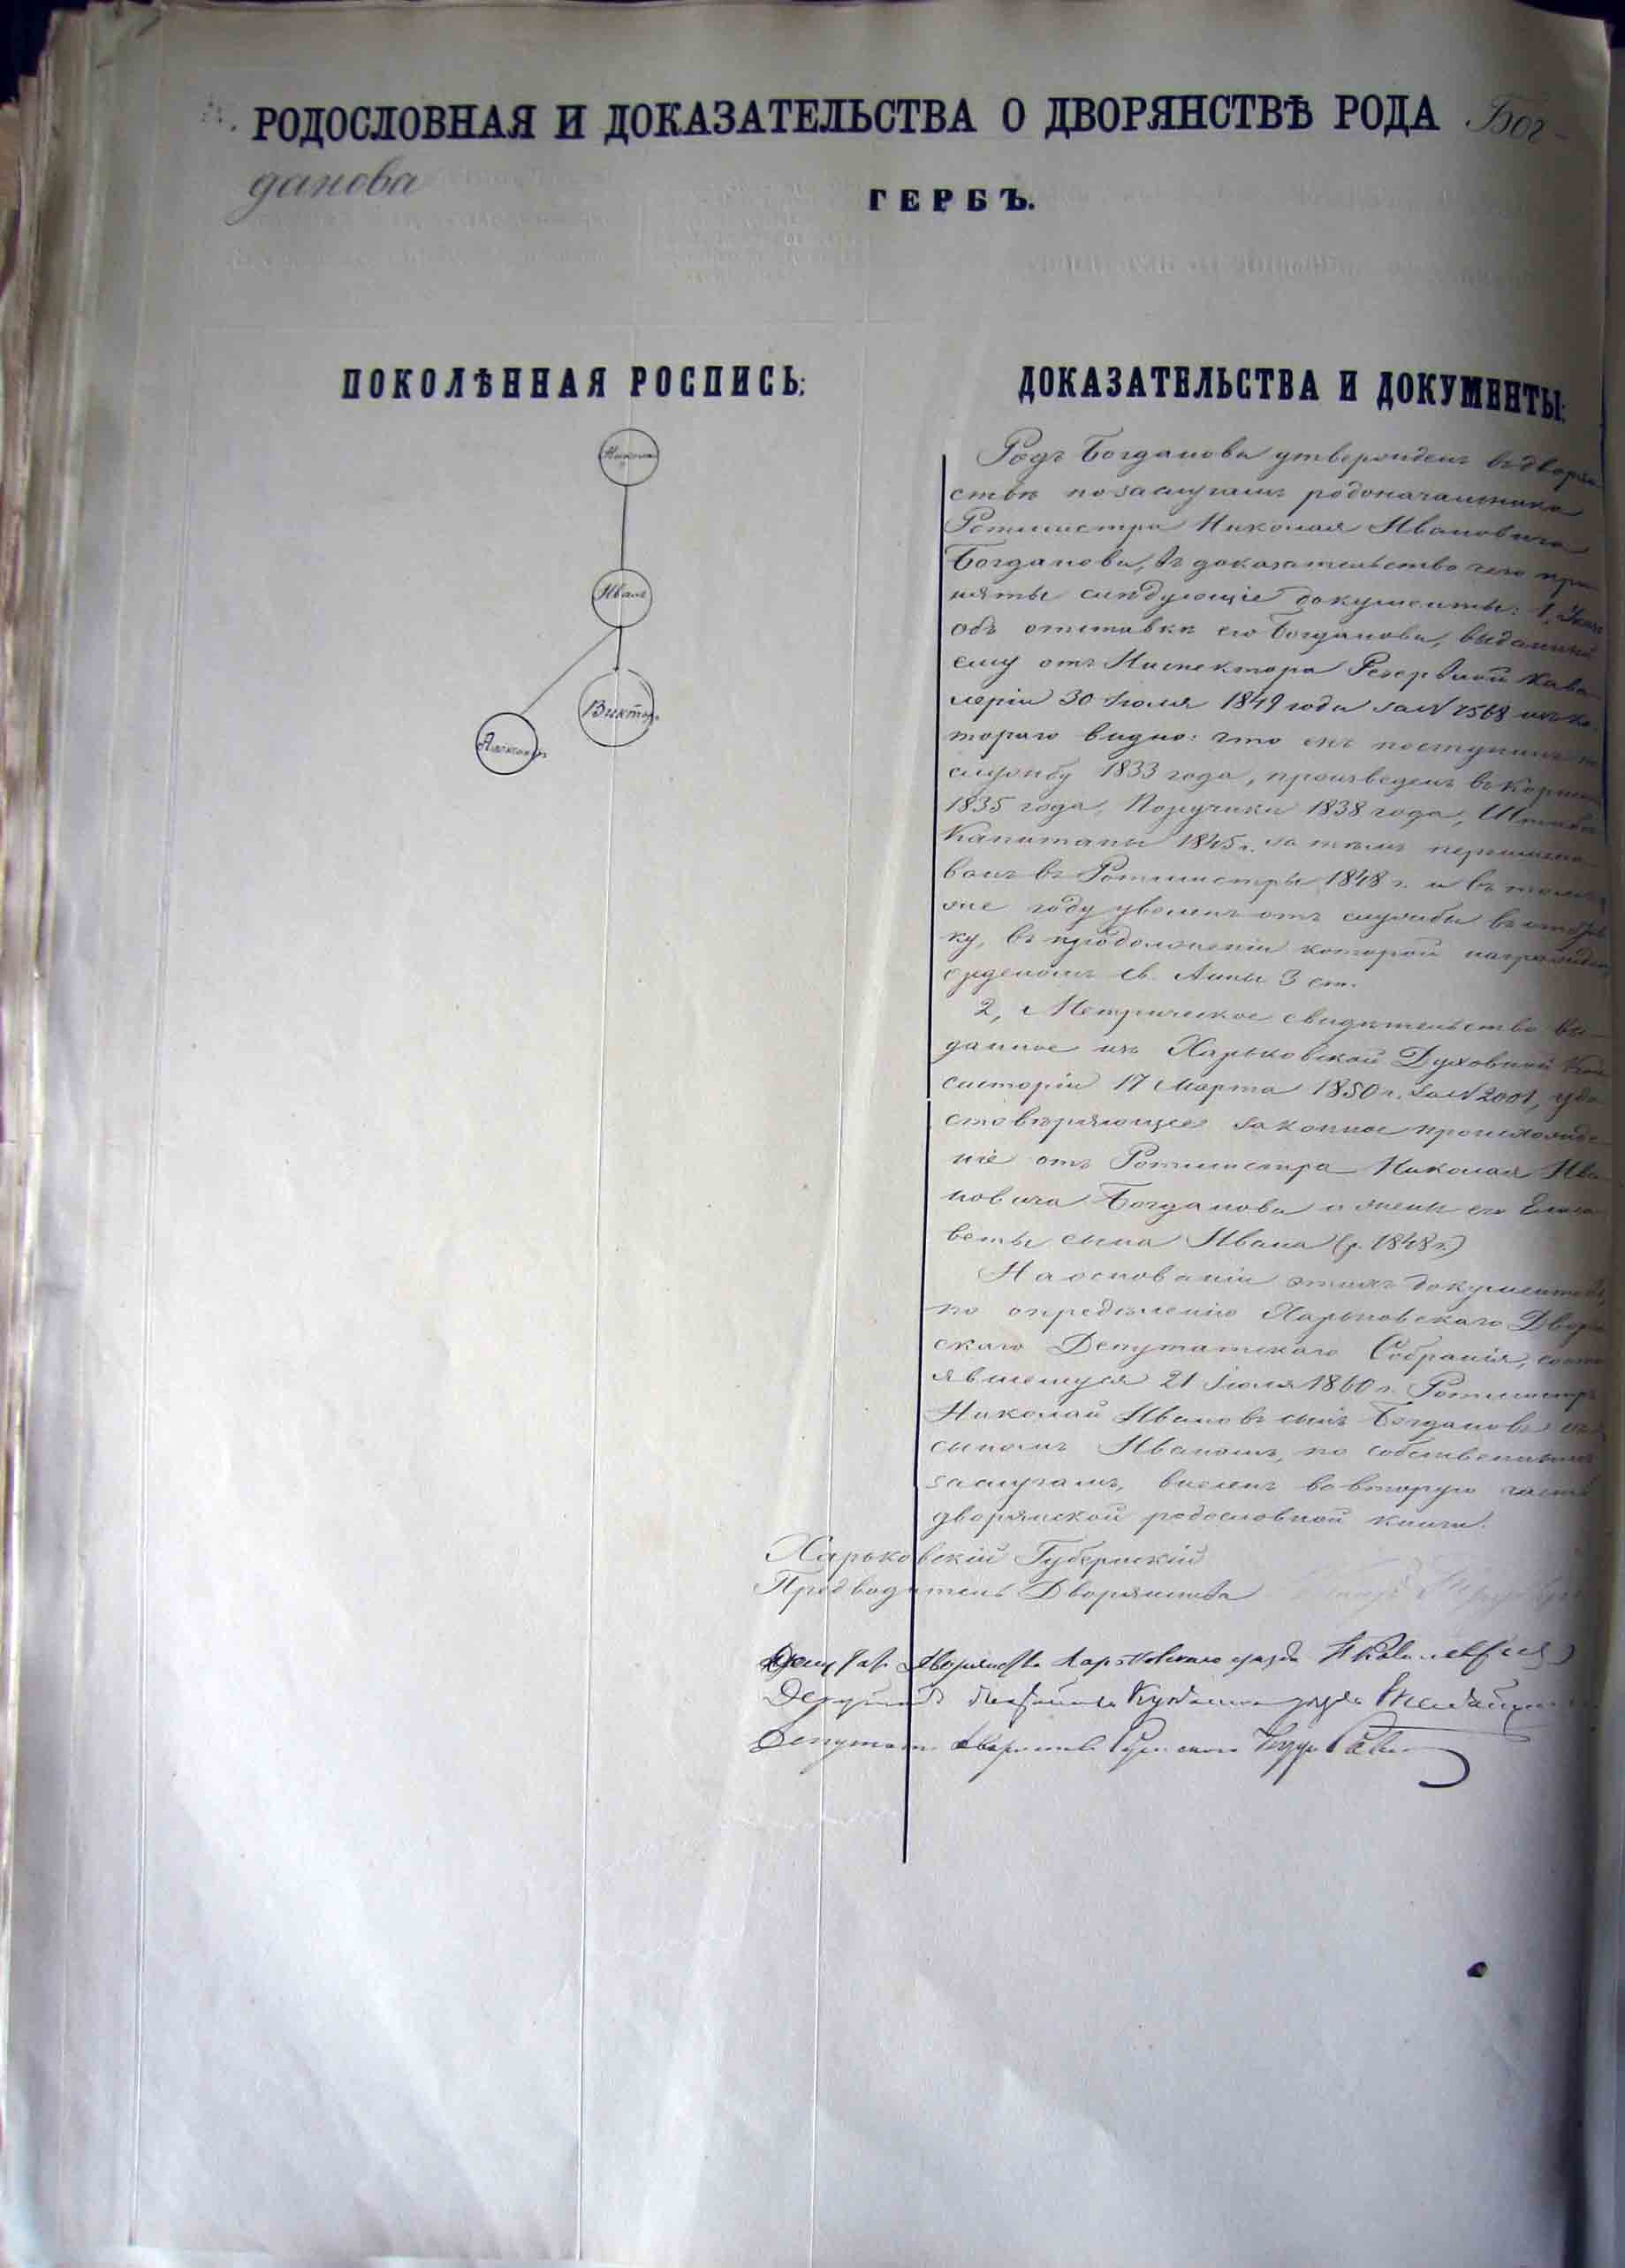 РОДОСЛОВНАЯ И ДОКАЗАТЕЛЬСТВА О ДВОРЯНСТВѢ РОДА Бог-
данова
ГЕРБЪ.
ПОКОЛѢННАЯ РОСПИСЬ:
Николай
Иванъ
Викторъ
Александръ
ДОКАЗАТЕЛЬСТВА И ДОКУМЕНТЫ:
Родъ Богданова утвержденъ въ дворян
ствѣ по заслугамъ родоначальника
Ротмистра Николая Ивановича
Богданова, въ доказательство чего при
няты слѣдующіе документы: 1, Указъ
объ отставкѣ его Богданова, выданный
ему отъ Инспектора Резервной Кава
леріи 30 Іюля 1849 года за N 7568 изъ ко
тораго видно: что онъ поступилъ въ
службу 1833 года, произведенъ въ Корнеты
1835 года, Поручики 1838 года, Штабсъ
Капитаны 1845 г. за тѣмъ переимено
ванъ въ Ротмистры 1848 г. и въ томъ
же году уволенъ отъ службы въ отстав
ку, въ продолженіи которой награжденъ
орденомъ Св. Анны 3 ст.
2, Метрическое свидѣтельство вы
данное изъ Харьковской Духовной Кон
систоріи 17 Марта 1850 г. за N 2001, удо
стовѣряющее законное происхожде
ніе отъ Ротмистра Николая Ива
новича Богданова и жены его Елиза
веты сына Ивана (р. 1848 г.)
На основаніи этихъ документовъ,
по опредѣленію Харьковскаго Дворян
скаго Депутатскаго Собранія, состо
явшемуся 21 Іюля 1860 г. Ротмистръ
Николай Ивановъ сынъ Богдановъ съ
сыномъ Иваномъ, по собственнымъ
заслугамъ, внесенъ во вторую часть
дворянской родословной книги.
Харьковскій Губернскій
Предводитель Дворянства
Депутатъ Дворянства Харьковскаго уѣзда
Депутатъ Дворянства Купянскаго уѣзда
Депутатъ Дворянства